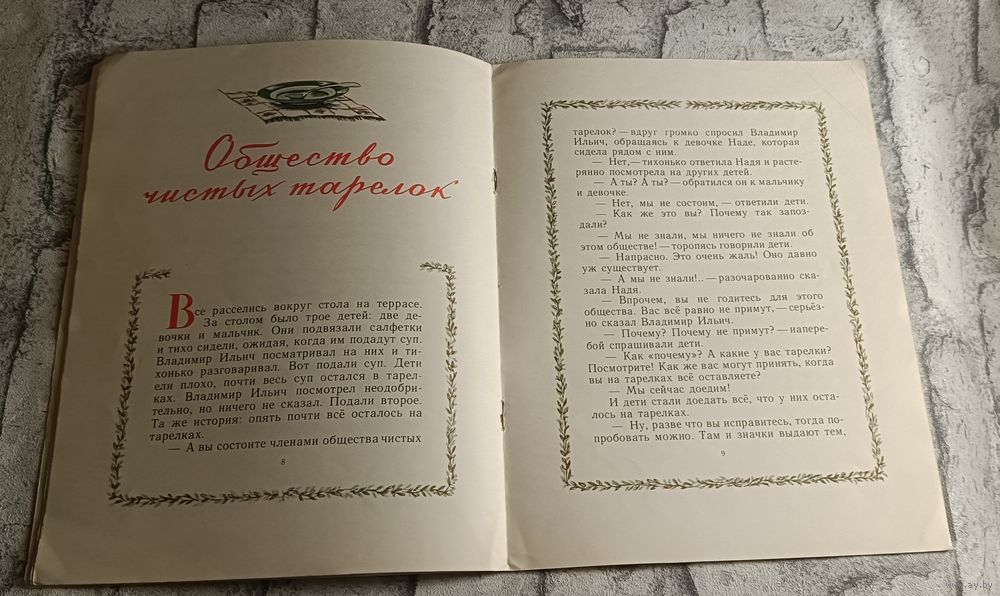 Общество
чистых тарелок
Все расселись вокруг стола на террасе.
За столом было трое детей: две де-
вочки и мальчик. Они подвязали салфетки
и тихо сидели, ожидая, когда им подадут суп.
Владимир Ильич посматривал на них и ти-
хонько разговаривал. Вот подали суп. Дети
ели плохо, почти весь суп остался в тарел-
ках. Владимир Ильич посмотрел неодобри-
тельно, но ничего не сказал. Подали второе.
Та же история: опять почти всё осталось на
тарелках.
— А вы состоите членами общества чистых
8
тарелок? — вдруг громко спросил Владимир
Ильич, обращаясь к девочке Наде, которая
сидела рядом с ним.
— Нет,— тихонько ответила Надя и расте-
рянно посмотрела на других детей.
— А ты? А ты? — обратился он к мальчику
и девочке.
— Нет, мы не состоим, — ответили дети.
— Как же это вы? Почему так запоз-
дали?
— Мы не знали, мы ничего не знали об
этом обществе! — торопясь говорили дети.
— Напрасно. Это очень жаль! Оно давно
уж существует.
— А мы не знали!.. — разочарованно ска-
зала Надя.
— Впрочем, вы не годитесь для этого
общества. Вас всё равно не примут, — серьёз-
но сказал Владимир Ильич.
— Почему? Почему не примут? — напере-
бой спрашивали дети.
— Как «почему»? А какие у вас тарелки?
Посмотрите! Как же вас могут принять, когда
вы на тарелках всё оставляете?
— Мы сейчас доедим!
И дети стали доедать всё, что у них оста-
лось на тарелках.
— Ну, разве что вы исправитесь, тогда по-
пробовать можно. Там и значки выдают тем,
9
www.ay.by